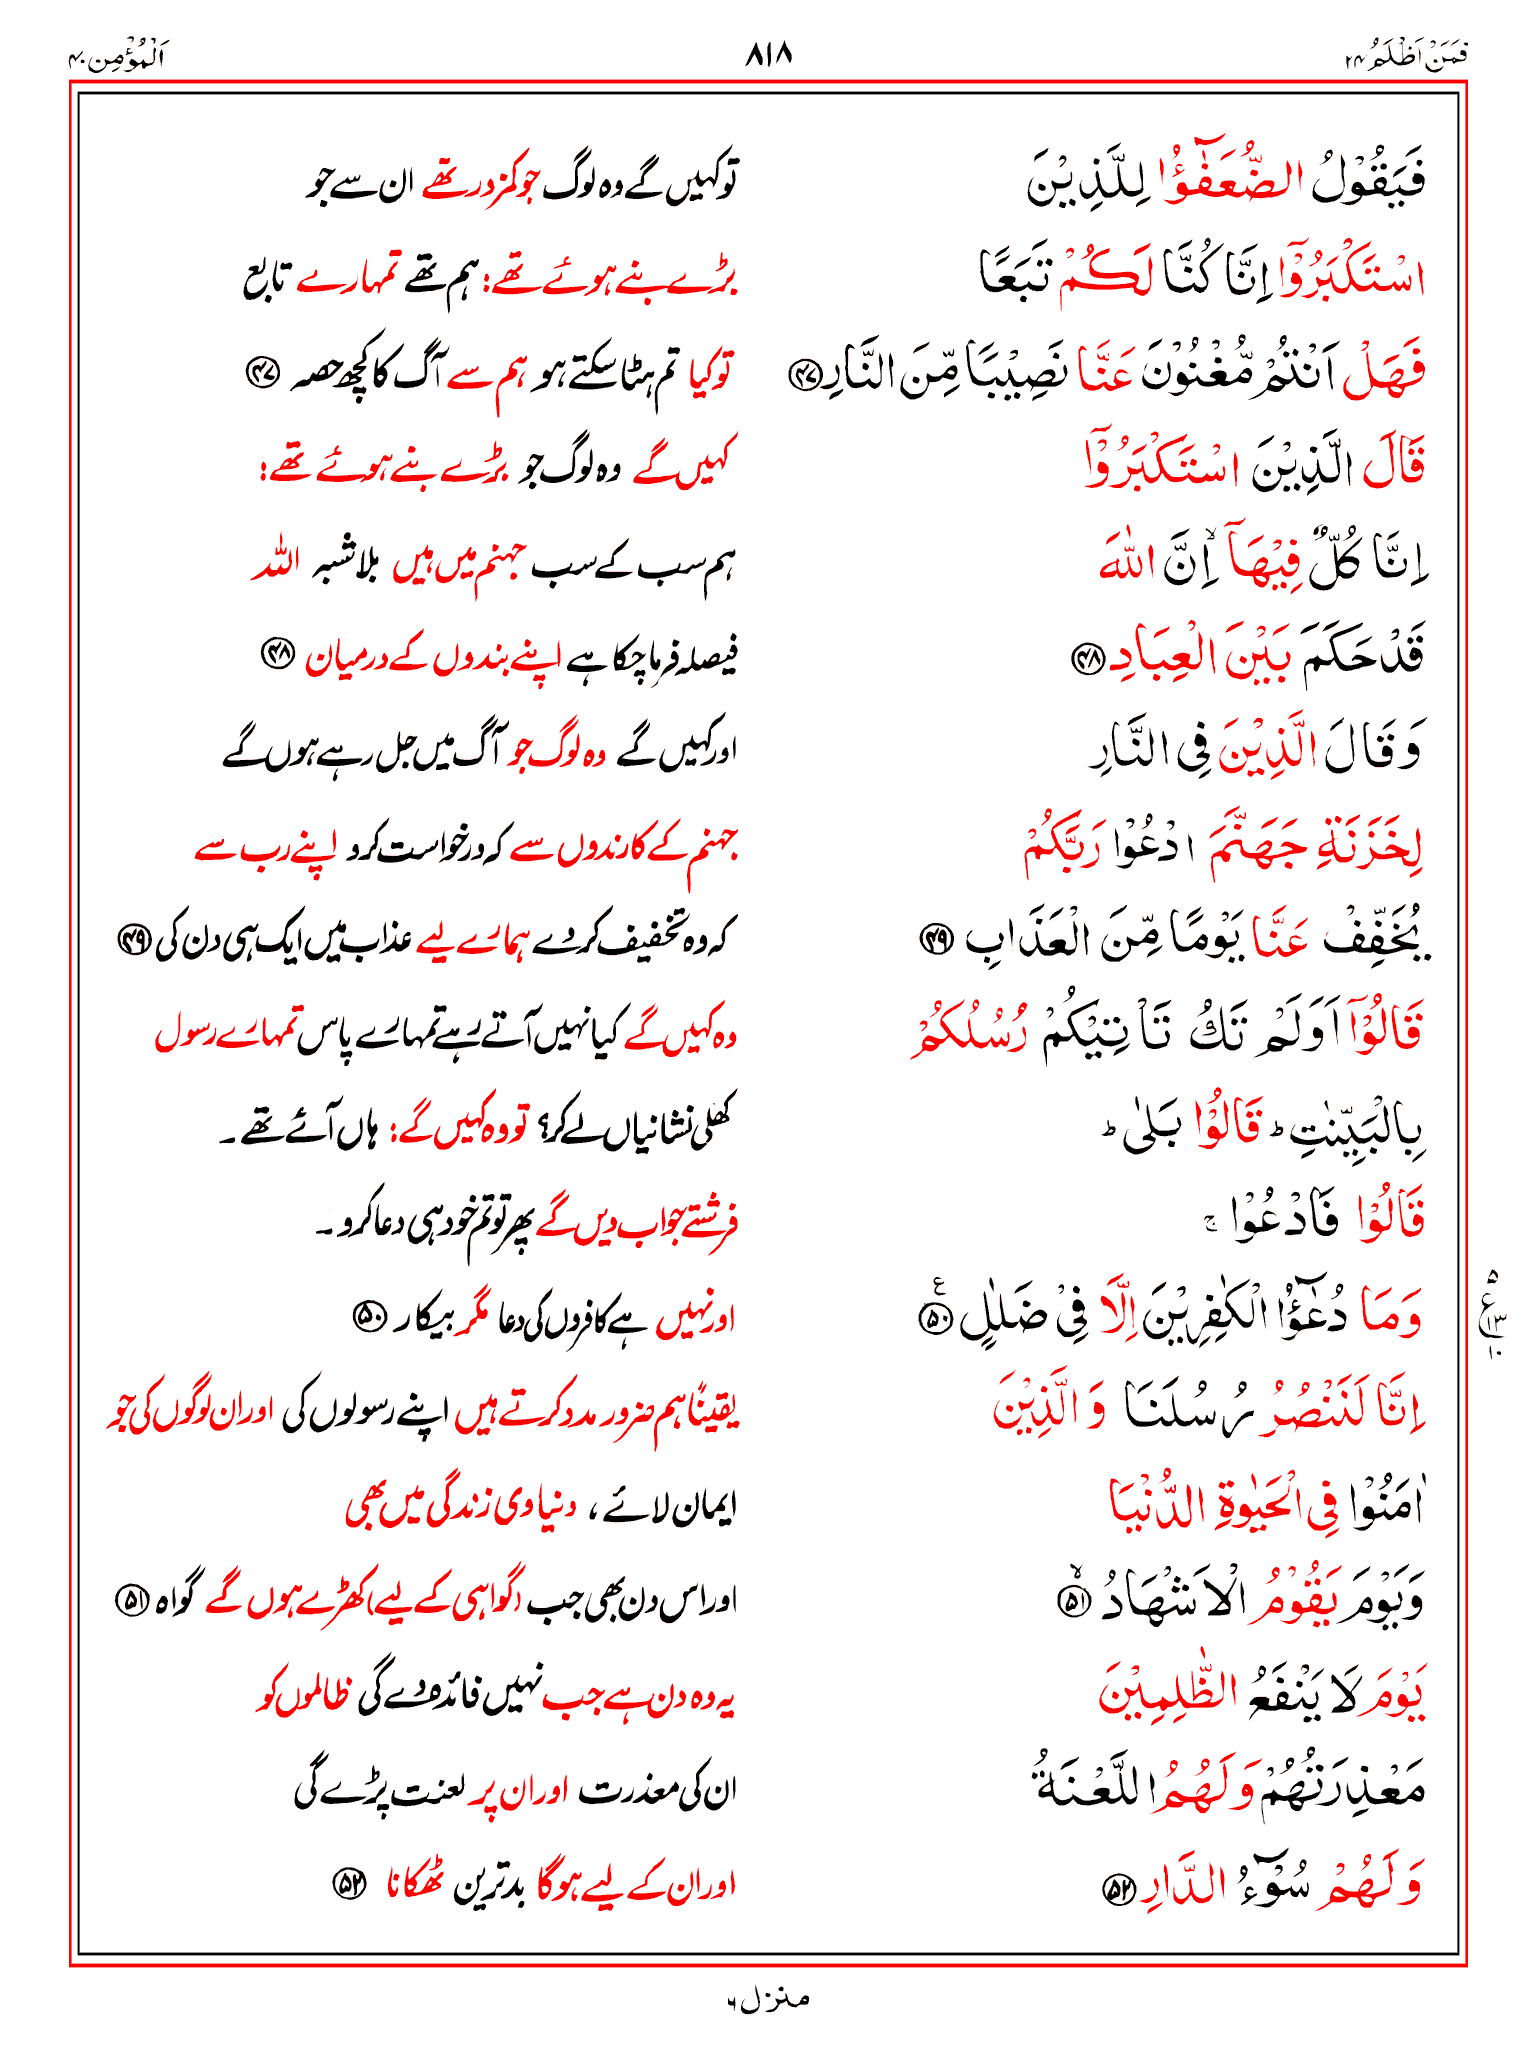 فَمَنْ اَظْلَمُ ۲۴ ۸۱۸ اَلْمُؤْمِن ۴۰
فَيَقُوْلُ الضُّعَفٰٓؤُا لِلَّذِيْنَ تو کہیں گے وہ لوگ جو کمزور تھے ان سے جو
اسْتَكْبَرُوْٓا اِنَّا كُنَّا لَكُمْ تَبَعًا بڑے بنے ہوئے تھے: ہم تھے تمہارے تابع
فَهَلْ اَنْتُمْ مُّغْنُوْنَ عَنَّا نَصِيْبًا مِّنَ النَّارِ ﴿۴۷﴾ تو کیا تم ہٹا سکتے ہو ہم سے آگ کا کچھ حصہ ﴿۴۷﴾
قَالَ الَّذِيْنَ اسْتَكْبَرُوْٓا کہیں گے وہ لوگ جو بڑے بنے ہوئے تھے:
اِنَّا كُلٌّ فِيْهَآ ۙ اِنَّ اللّٰهَ ہم سب کے سب جہنم میں ہیں بلاشبہ اللہ
قَدْ حَكَمَ بَيْنَ الْعِبَادِ ﴿۴۸﴾ فیصلہ فرما چکا ہے اپنے بندوں کے درمیان ﴿۴۸﴾
وَقَالَ الَّذِيْنَ فِى النَّارِ اور کہیں گے وہ لوگ جو آگ میں جل رہے ہوں گے
لِخَزَنَةِ جَهَنَّمَ ادْعُوْا رَبَّكُمْ جہنم کے کارندوں سے کہ درخواست کرو اپنے رب سے
يُخَفِّفْ عَنَّا يَوْمًا مِّنَ الْعَذَابِ ﴿۴۹﴾ کہ وہ تخفیف کر دے ہمارے لیے عذاب میں ایک ہی دن کی ﴿۴۹﴾
قَالُوْٓا اَوَلَمْ تَكُ تَاْتِيْكُمْ رُسُلُكُمْ وہ کہیں گے کیا نہیں آتے رہے تمہارے پاس تمہارے رسول
بِالْبَيِّنٰتِ ؕ قَالُوْا بَلٰى ؕ کھلی نشانیاں لے کر؟ تو وہ کہیں گے: ہاں آئے تھے۔
قَالُوْا فَادْعُوْا ۚ فرشتے جواب دیں گے پھر تو تم خود ہی دعا کرو۔
وَمَا دُعٰٓؤُا الْكٰفِرِيْنَ اِلَّا فِىْ ضَلٰلٍ ﴿۵۰﴾ ع اور نہیں ہے کافروں کی دعا مگر بیکار ﴿۵۰﴾
۵ ع ۱۳ ۱۰
اِنَّا لَنَنْصُرُ رُسُلَنَا وَالَّذِيْنَ یقیناً ہم ضرور مدد کرتے ہیں اپنے رسولوں کی اور ان لوگوں کی جو
اٰمَنُوْا فِى الْحَيٰوةِ الدُّنْيَا ایمان لائے، دنیاوی زندگی میں بھی
وَيَوْمَ يَقُوْمُ الْاَشْهَادُ ﴿۵۱﴾ ۙ اور اس دن بھی جب (گواہی کے لیے) کھڑے ہوں گے گواہ ﴿۵۱﴾
يَوْمَ لَا يَنْفَعُ الظّٰلِمِيْنَ یہ وہ دن ہے جب نہیں فائدہ دے گی ظالموں کو
مَعْذِرَتُهُمْ وَلَهُمُ اللَّعْنَةُ ان کی معذرت اور ان پر لعنت پڑے گی
وَلَهُمْ سُوْٓءُ الدَّارِ ﴿۵۲﴾ اور ان کے لیے ہوگا بدترین ٹھکانا ﴿۵۲﴾
منزل ۶